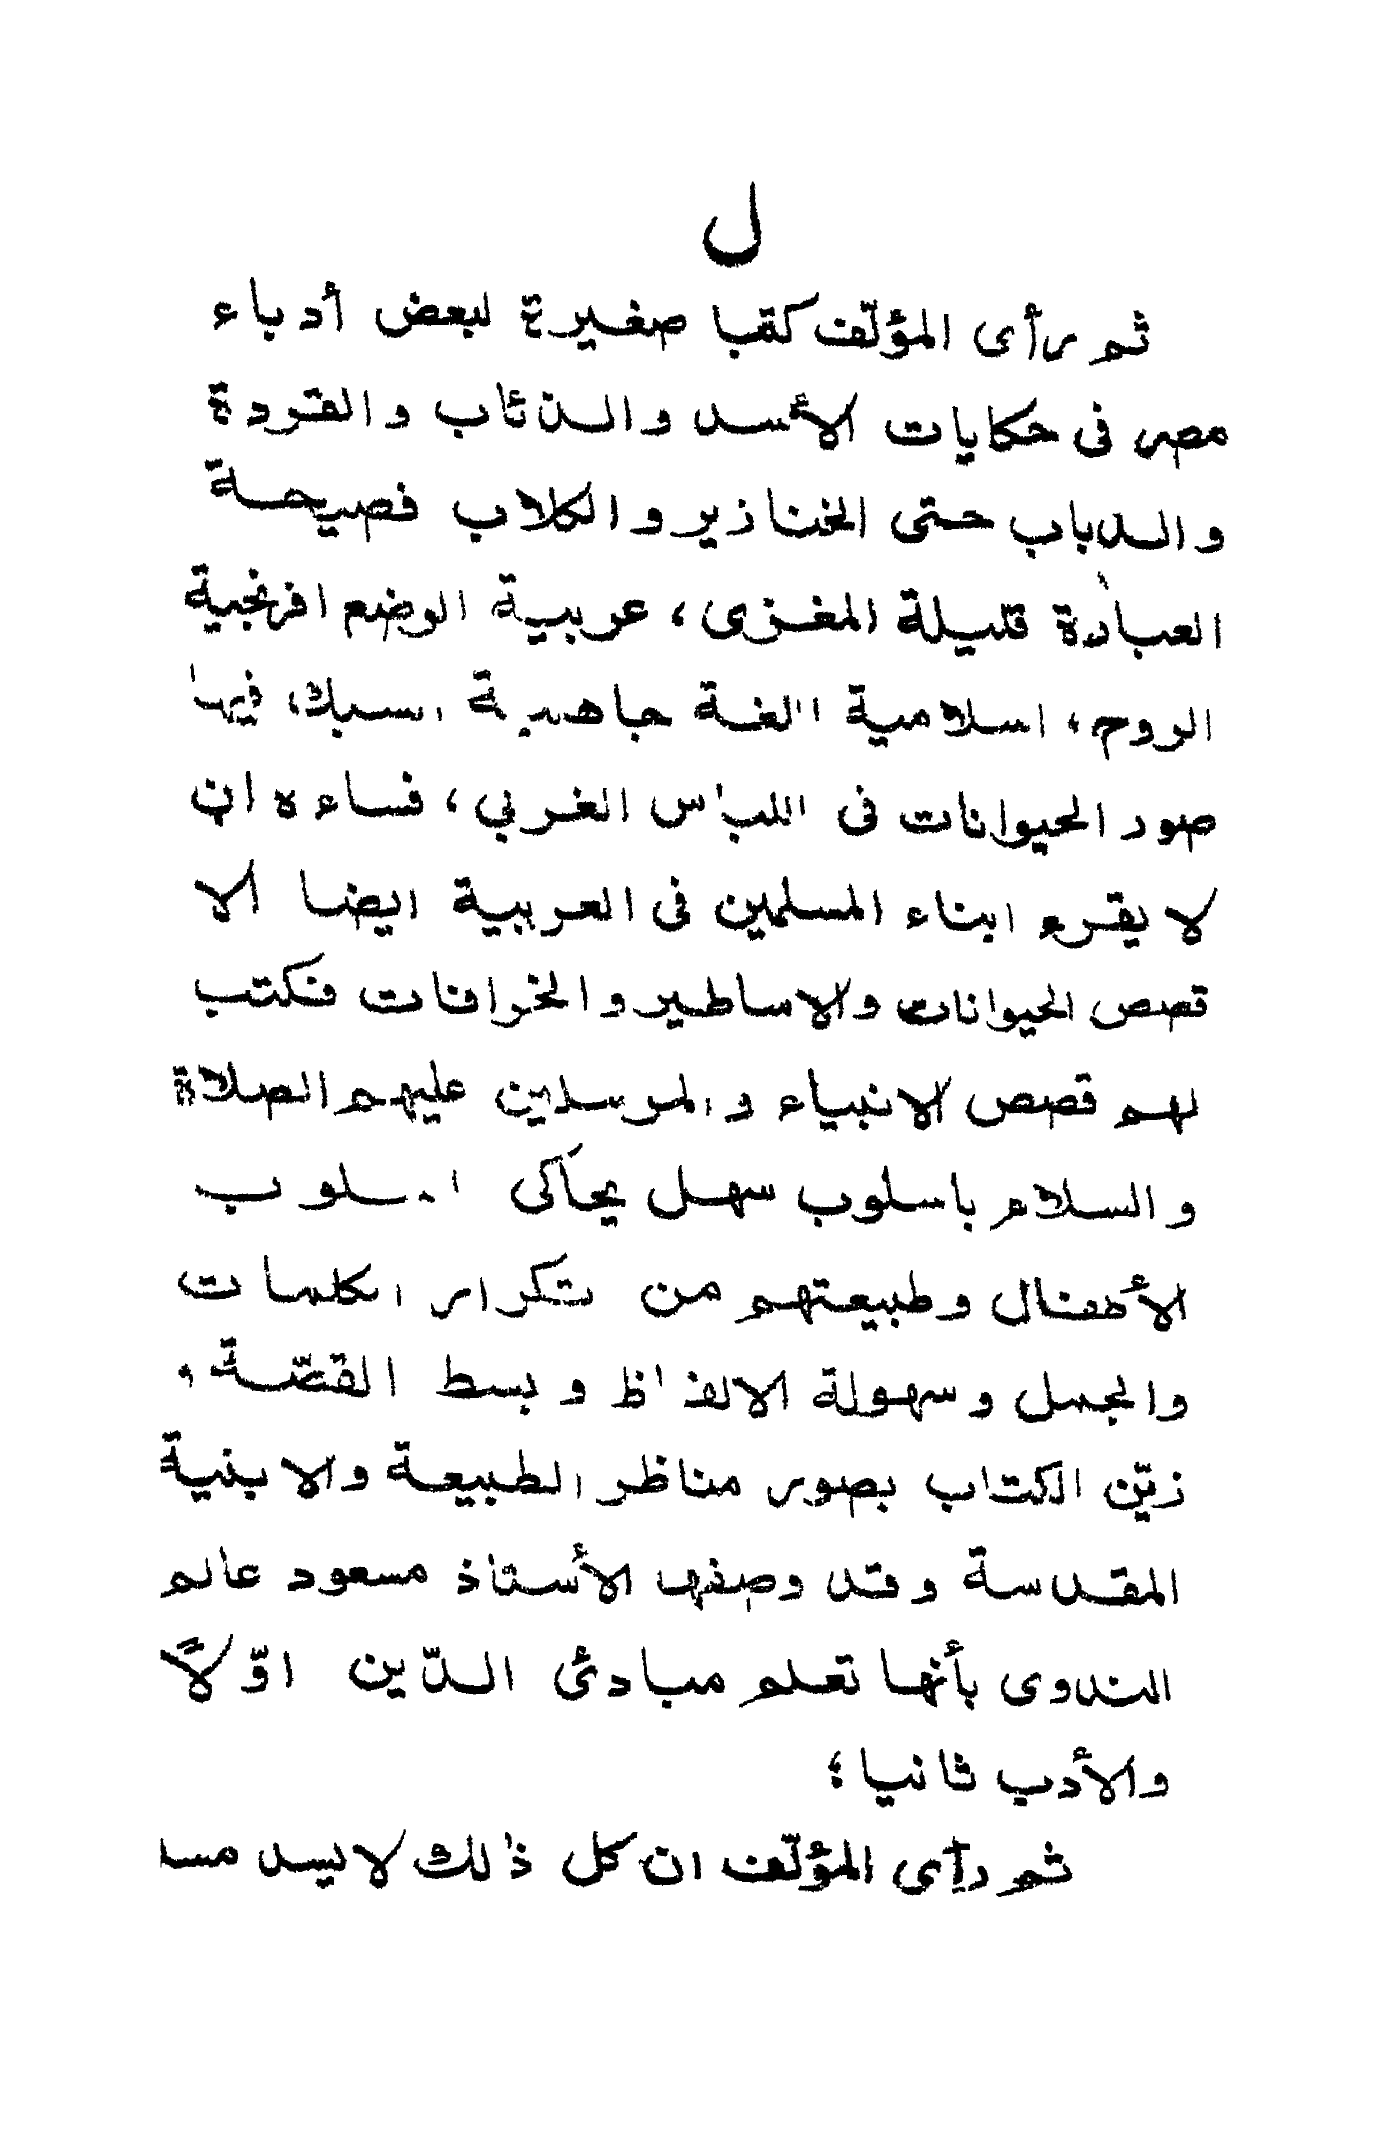 ل
ثم رأى المؤلّف كتبا صغيرة لبعض أدباء
مصر فى حكايات الأسد والذئاب والقردة
والدباب حتى الخنازير والكلاب فصيحة
العبارة قليلة المغزى، عربية الوضع افرنجية
الروح، اسلامية اللغة جاهلية السبك، فيها
صور الحيوانات فى اللباس الغربي، فساءه ان
لا يقرء ابناء المسلمين فى العربية ايضا الا
قصص الحيوانات والاساطير والخرافات فكتب
لهم قصص الانبياء والمرسلين عليهم الصلاة
والسلام باسلوب سهل يحاكى اسلوب
الأطفال وطبيعتهم من تكرار الكلمات
والجمل وسهولة الالفاظ وبسط القصّة و
زيّن الكتاب بصور مناظر الطبيعة والابنية
المقدسة وقد وصفها الأستاذ مسعود عالم
الندوى بأنها تعلم مبادئى الدّين اوّلاً
والأدب ثانيا؛
ثم رأى المؤلّف ان كل ذالك لا يسد مسا